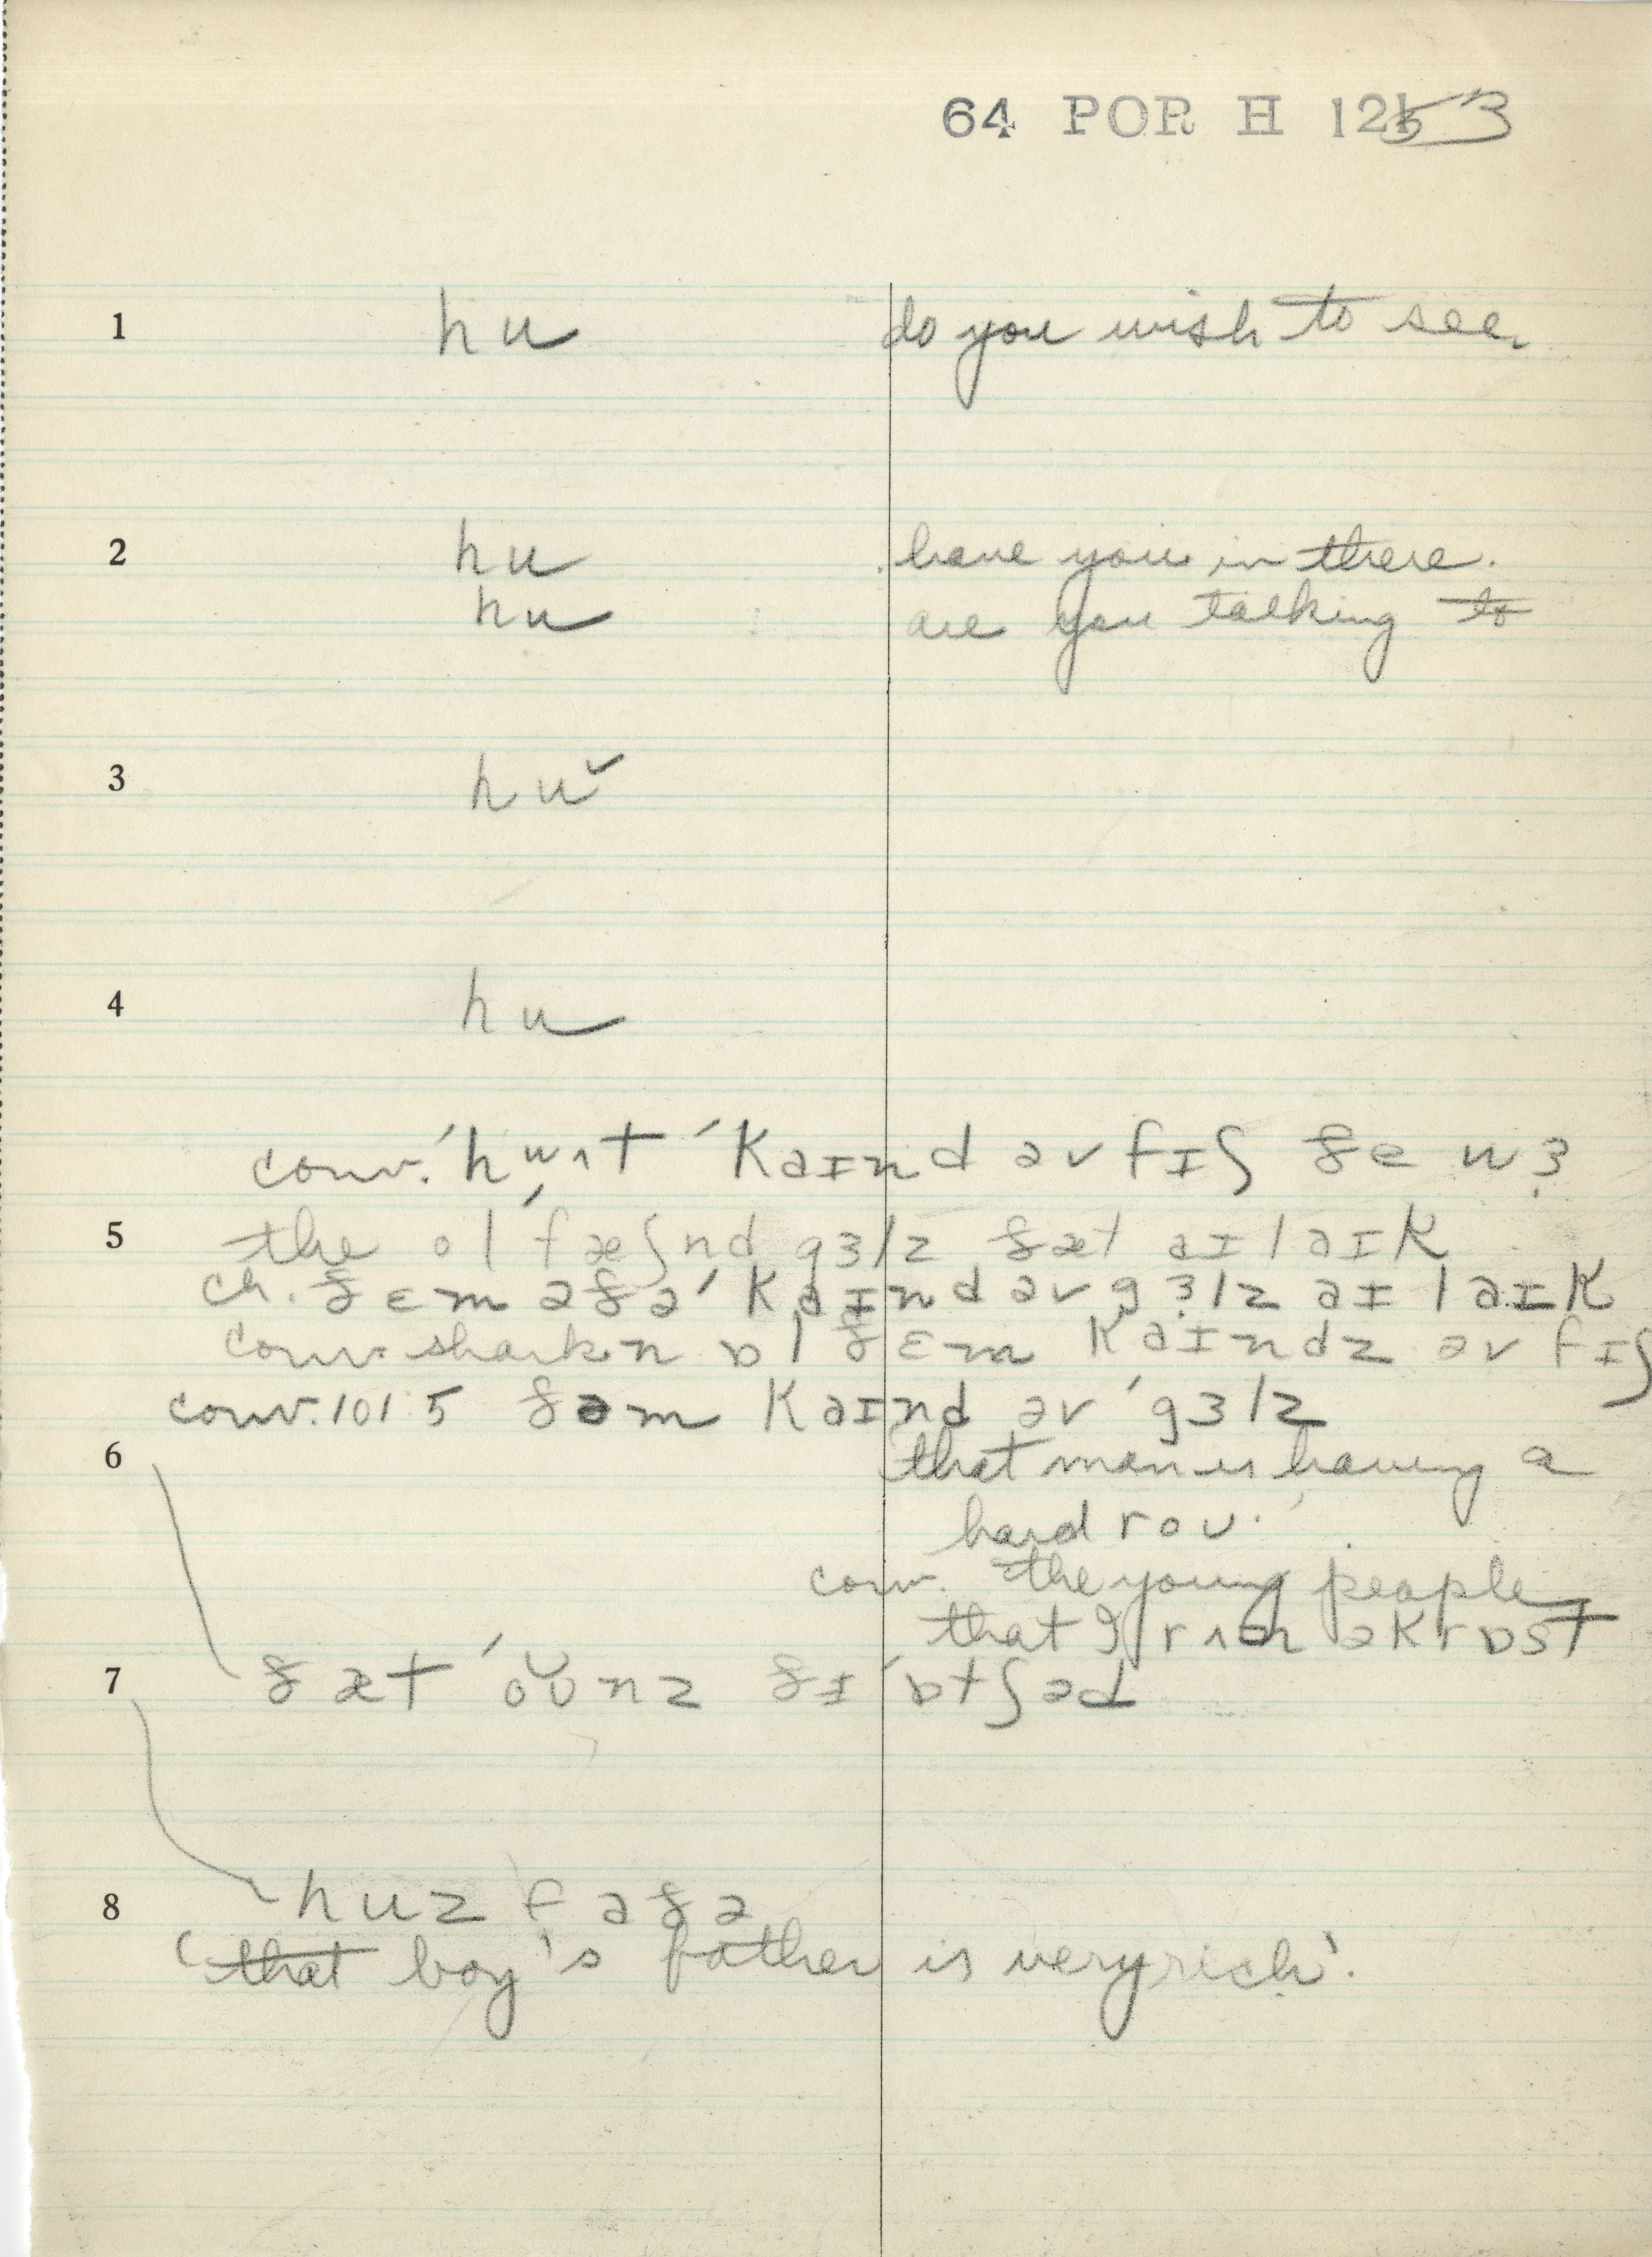 64 POR H 1253
1 hu do you wish to see.
2 hu have you in there.
hu are you talking to
3 hu˅
4 hu
conv. ˈhʷʌt ˈkaɪnd əv fɪʃ ðe wɜ
5 the ol ˈfæʃnd gɜlz ðæt aɪ laɪk
ch. ðɛm əðə ˈkaɪnd əv gɜlz aɪ laɪk
conv. shark n ɒl ðɛm kaɪndz əv fɪʃ
conv. 101.5 ðəm kaɪnd əv ˈgɜlz
6 that man is having a
hard roʊ.
conv. the young people
that I rʌn əkrɒst
7 ðæt ˈoʊnz ðɪ ˈɒtʃəd
8 huz faðə
(that boy's father is very rich'.